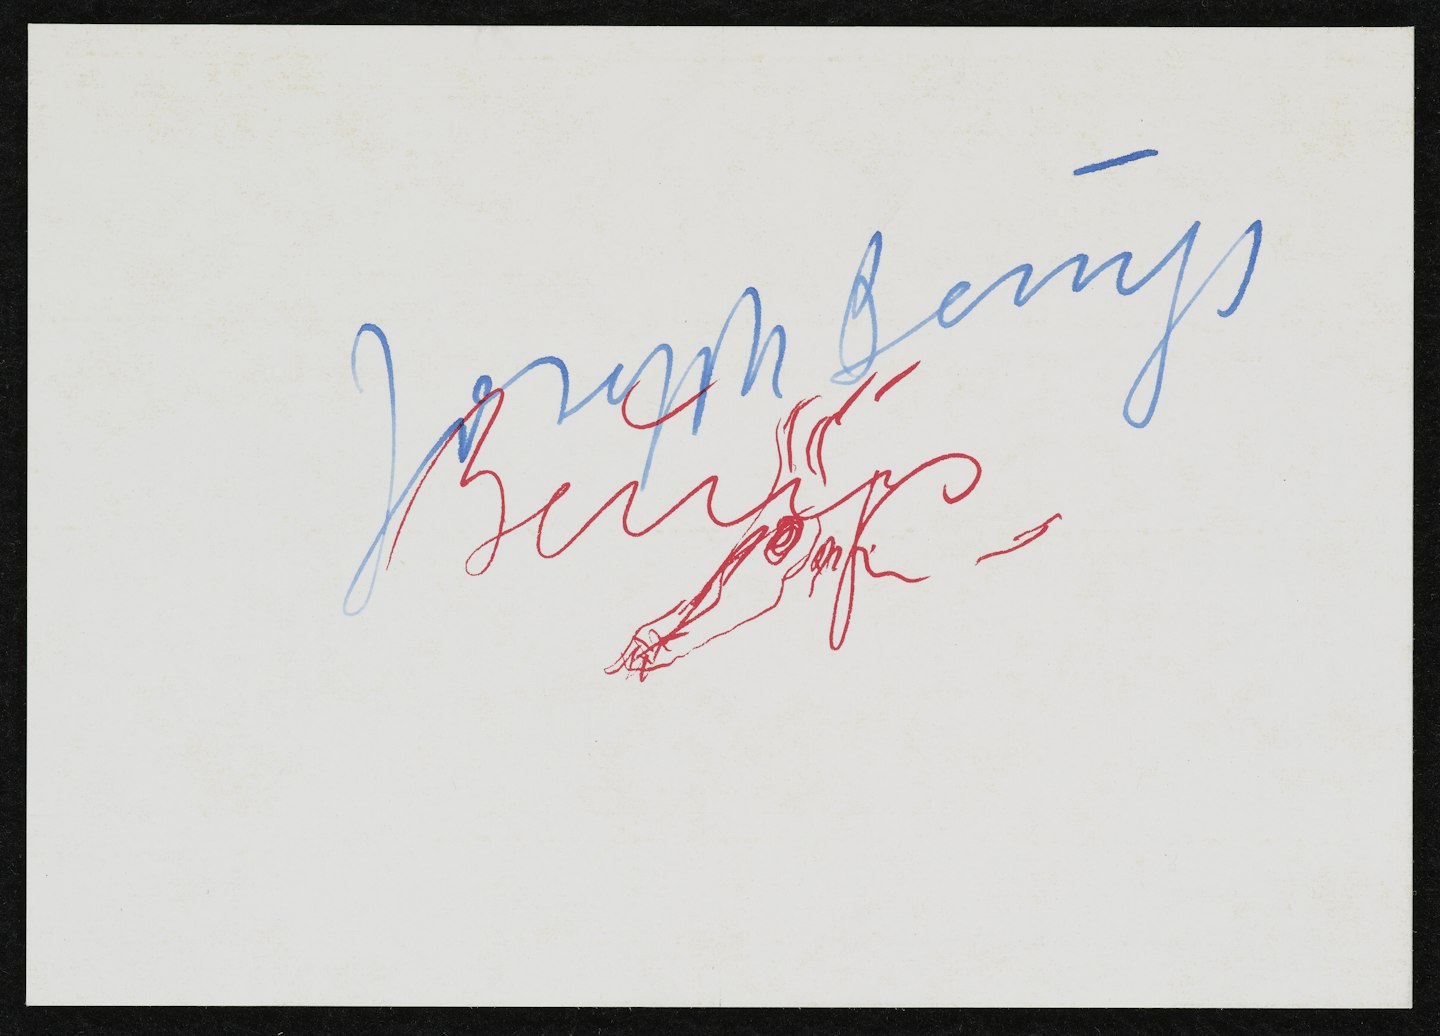 Joseph Beuys
Beuys